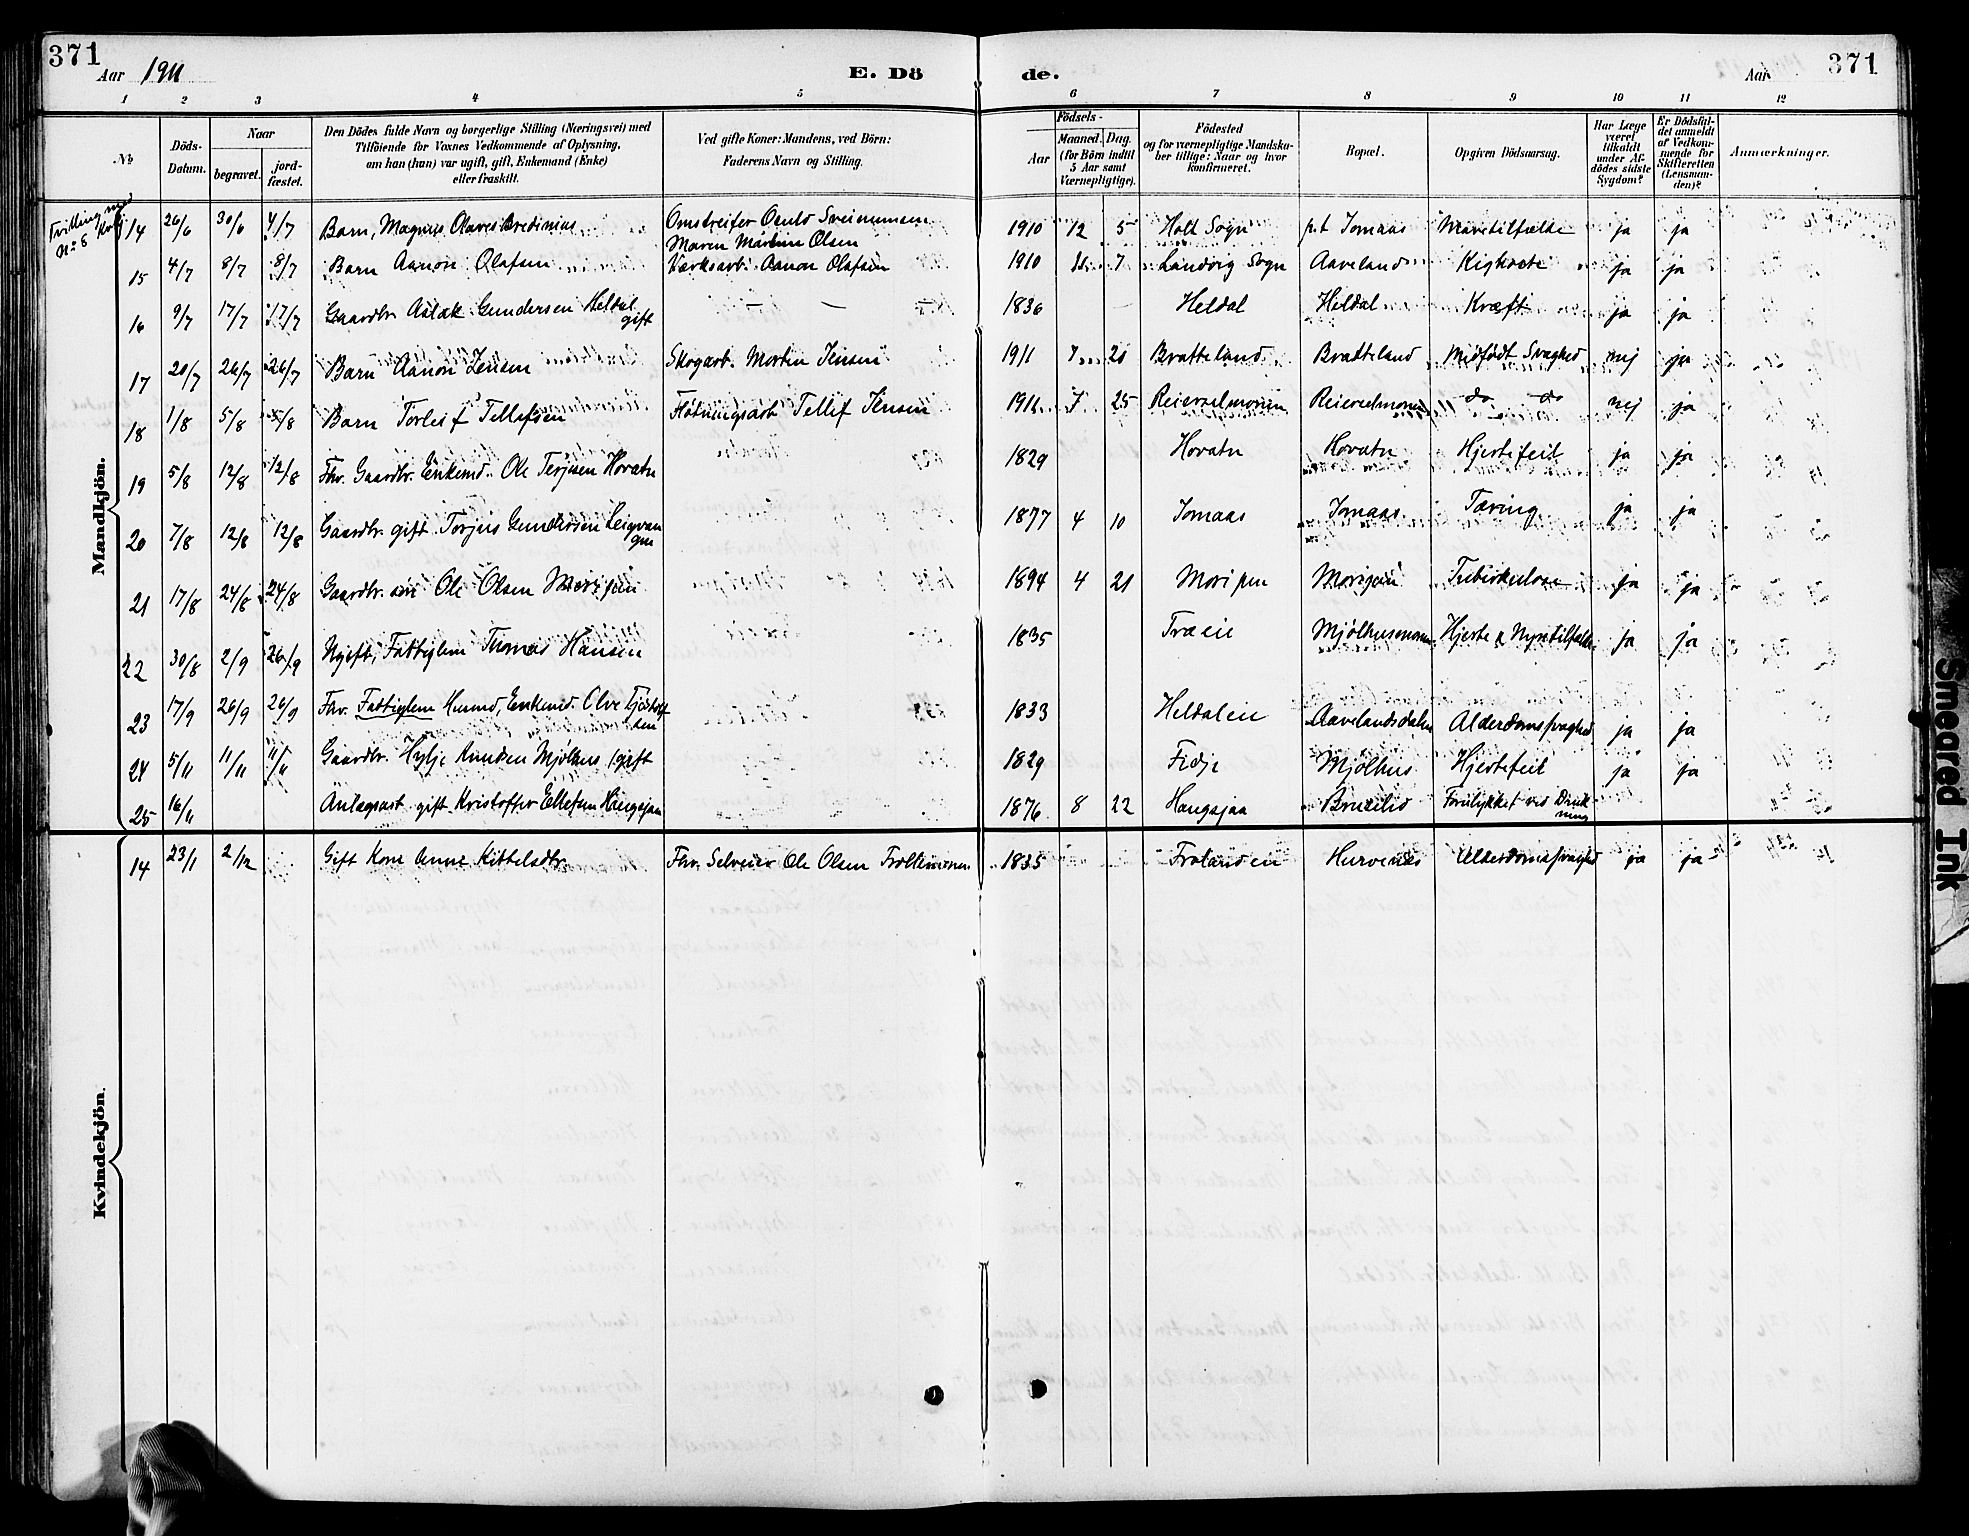 371
Aar 1911
E. Dö
de.
Aar
371
1 2 3 4 5 6 7 8 9 10 11 12
No
Döds-
Datum.
Naar
begravet.
jord-
fæstet.
Den Dödes fulde Navn og borgerlige Stilling (Næringsvei) med
Tilföiende for Voxnes Vedkommende af Oplysning,
om han (hun) var ugift, gift, Enkemand (Enke)
eller fraskilt.
Ved gifte Koner: Mandens, ved Börn:
Faderens Navn og Stilling.
Födsels-
Aar
Maaned. Dag.
(for Börn indtil
5 Aar samt
Værnepligtige).
Födested
og for værnepligtige Mandska-
ber tillige: Naar og hvor
konfirmeret.
Bopæl.
Opgiven Dödsaarsag.
Har Læge
været
tilkaldt
under Af-
dödes sidste
Sygdom?
Er Dödsfal-
det anmeldt
af Vedkom-
mende for
Skifteretten
(Lensman-
den)?
Anmærkninger.
Mandkjön.
Tvilling med
No 8 Kvkj
14 26/6 30/6 4/7 Barn, Magnus Olaves Bredinius Omstreifer Oculd Sveinunsen 1910 12 5 Holt Sogn p.t Jomaas Mavetilfælde ja ja
Maren Martine Olsen
15 4/7 8/7 8/7 Barn Aanon Olafsen Værksarb. Aanon Olafsen 1910 11 7 Landvig Sogn Aaveland Kighoste ja ja
16 9/7 17/7 17/7 Gaardbr Aslak Gundersen Heldal — — 1836 — Heldal Heldal Kræft ja ja
gift
17 20/7 26/7 26/7 Barn Aanon Jensen Skogarb. Morten Jensen 1911 7 20 Bratteland Bratteland Medfødt Svaghed nej ja
18 1/8 5/8 5/8 Barn Torleif Tellefsen Fløtningsarb Tellef Jensen 1911 7 25 Reierselmonen Reierselmonen do do nej ja
19 5/8 12/8 12/8 Fhv. Gaardbr. Enkemd. Ole Terjesen Hovatn 1829 Hovatn Hovatn Hjertefeil ja ja
20 7/8 12/8 12/8 Gaardbr. gift Torjus Gundersen 1877 4 10 Jomaas Jomaas Tæring ja ja
21 17/8 24/8 24/8 Gaardbr. søn Ole Olsen Morijen 1894 4 21 Morijen Morijen Tuberkulose ja ja
22 30/8 2/9 26/9 Ugift, Fattiglem Thomas Hansen 1835 Træeie Mjølhusmonen Hjerte & Nyretilfælde ja ja
23 17/9 26/9 26/9 Fhv. Fattiglem Husmd, Enkemd. Olve Tjøstolf 1833 Heldaleie Aavelandsdalen Alderdomssvaghed ja ja
sen
24 5/11 11/11 11/11 Gaardbr. Hylje Knudsen Mjølhus (gift 1829 Fidje Mjølhus Hjertefeil ja ja
25 16/11 Anlægsarb gift Kristoffer Ellefsen Haugsjaa 1876 8 22 Haugsjaa Bruelid Forulykket ved Druk-
ning
Kvindekjön.
14 23/1 2/12 Gift Kone Anne Kittelsdtr. Fhv. Selveier Ole Olsen Trollemonen 1835 Frolandeie Hurvenes Alderdomssvaghed ja ja
Smeared Ink